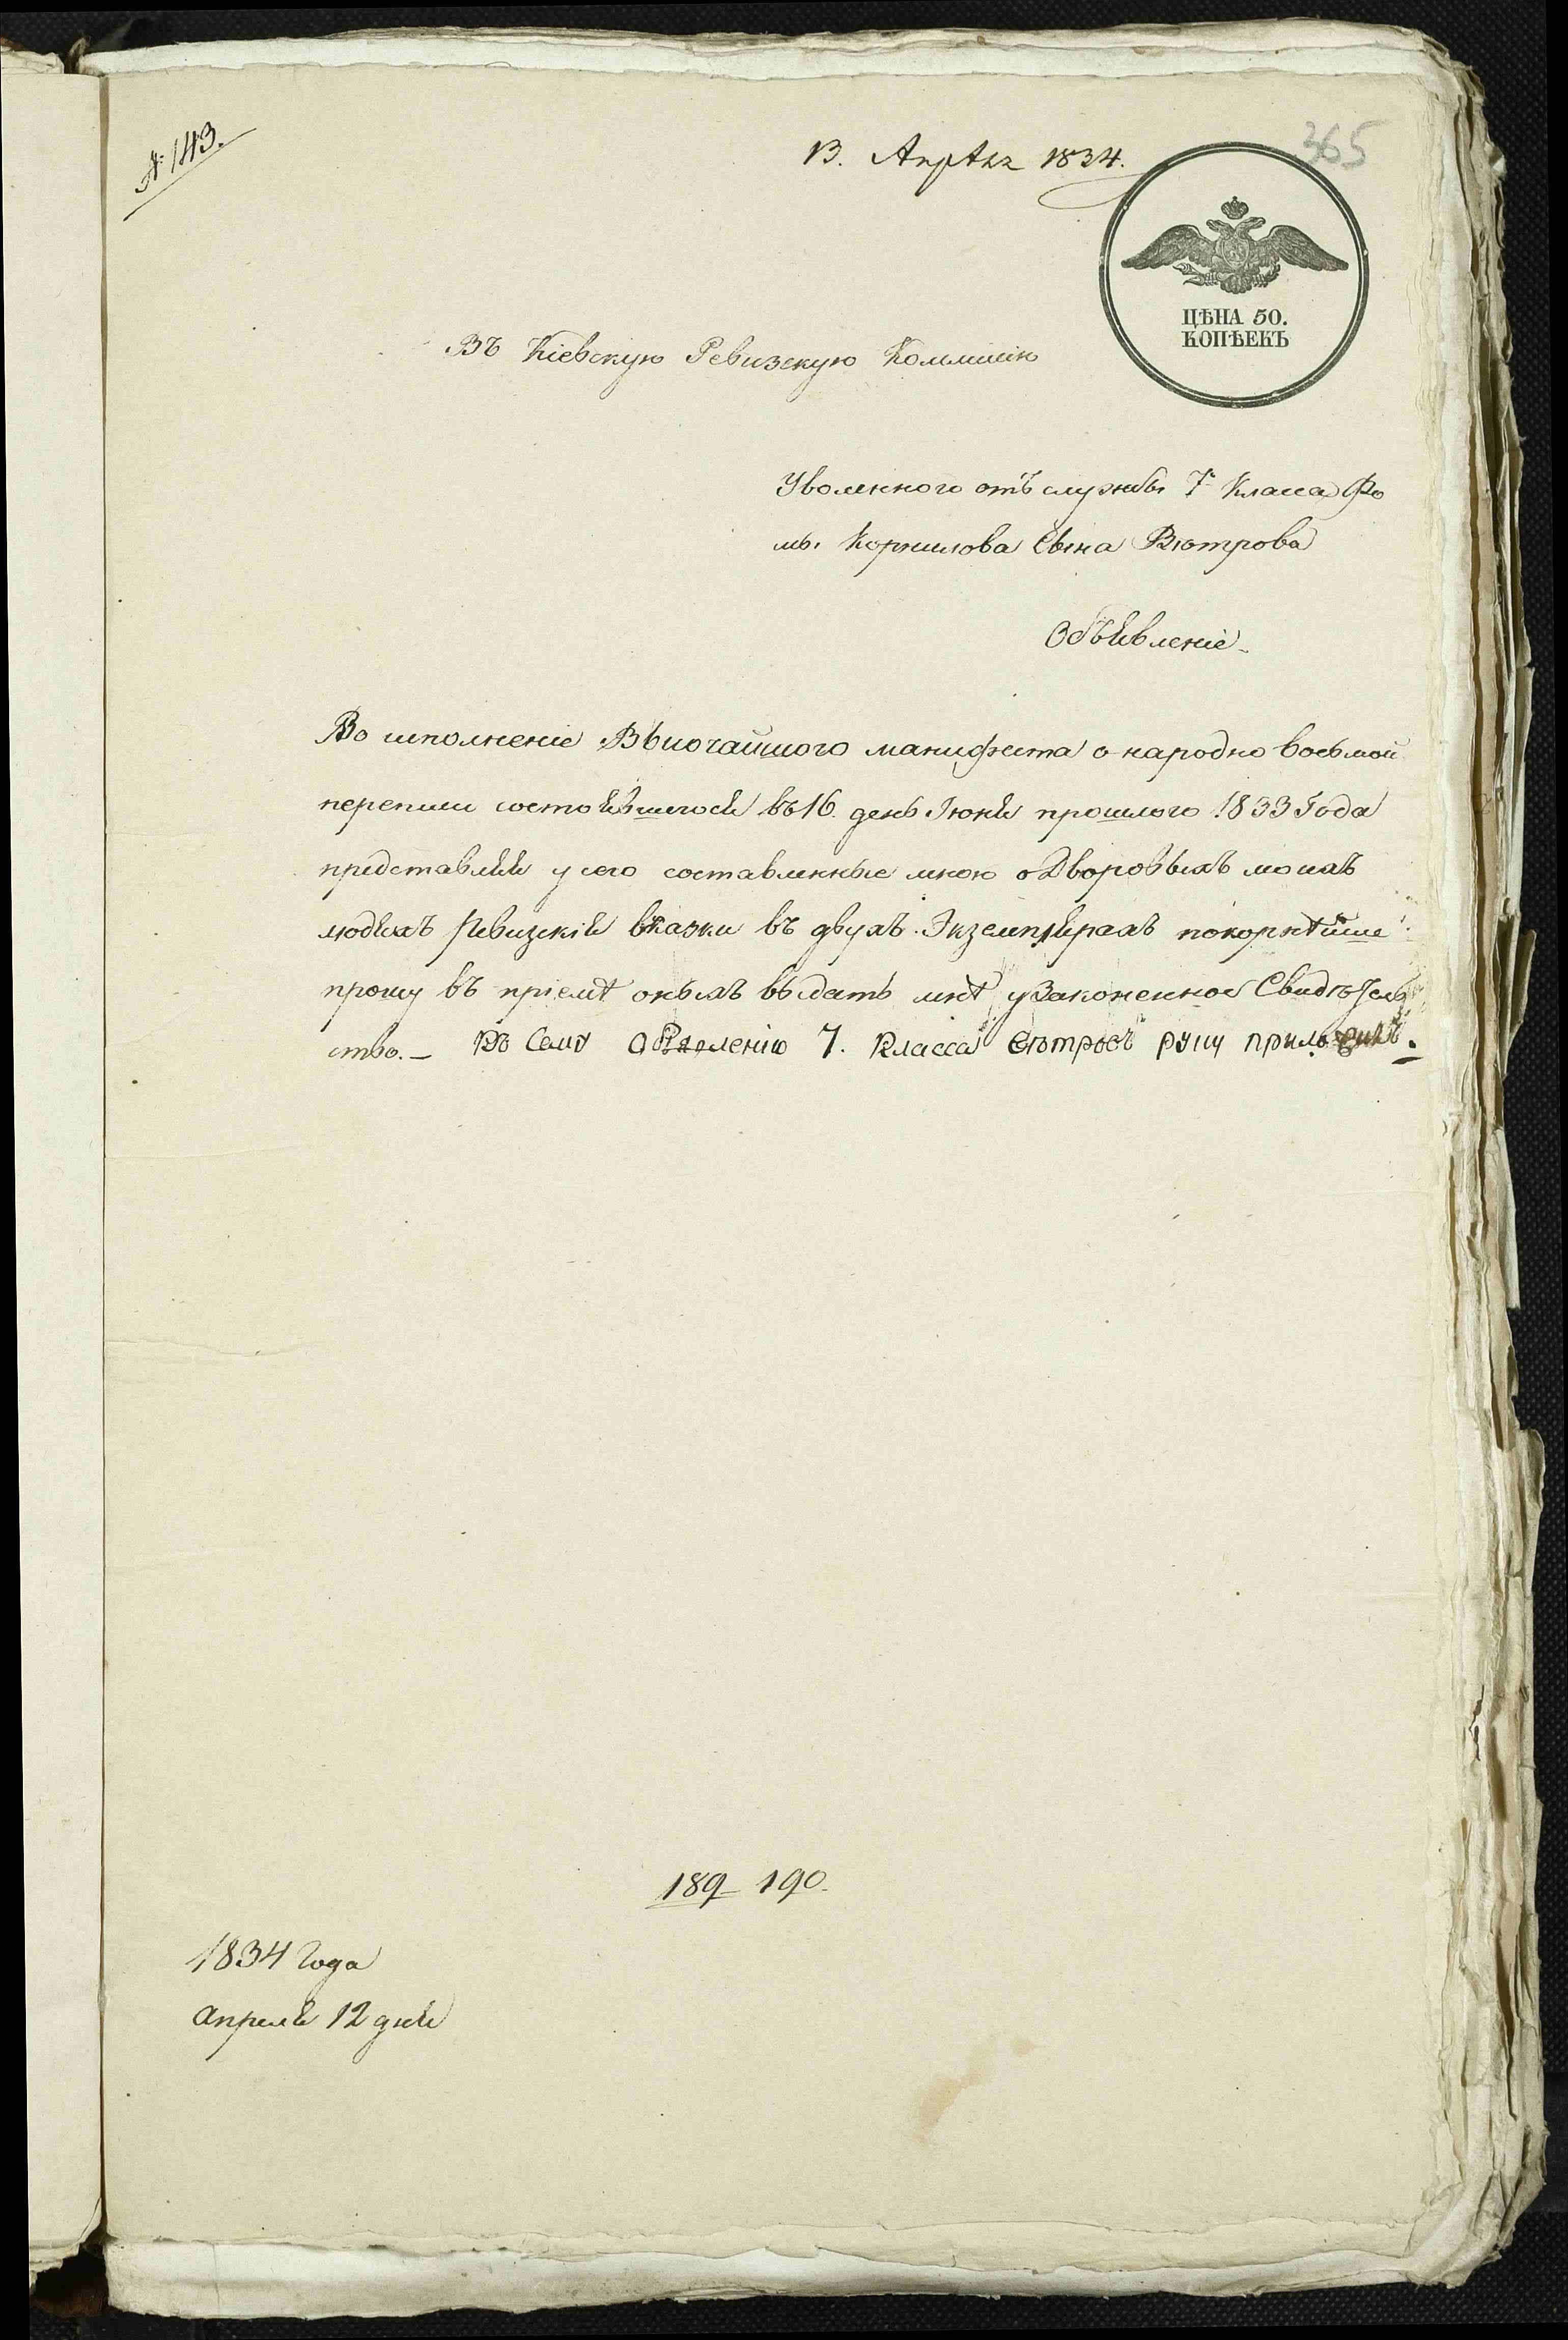 № 143.
13. Апрѣля 1834.
365
ЦѢНА 50.
КОПѢЕКЪ
Въ Кіевскую Ревизскую Коммисію
Уволенного отъ службы 7 Класса Фо
мы Корнилова Сына Вютрова
Объявленіе
Во исполненіе Высочайшого манифеста о народно восьмой
переписи состоявшегося въ 16 день Іюня прошлого 1833 Года
представляя у сего составленные мною о Дворовыхъ моихъ
людяхъ Ревизскія сказки въ двухъ Экземплярахъ покорнѣйше
прошу въ пріемѣ оныхъ выдать мнѣ узаконенное Свидѣтель
ство. — Къ Сему 7. Класса руку приложилъ.
189 190
1834 Года
Апреля 12 дня